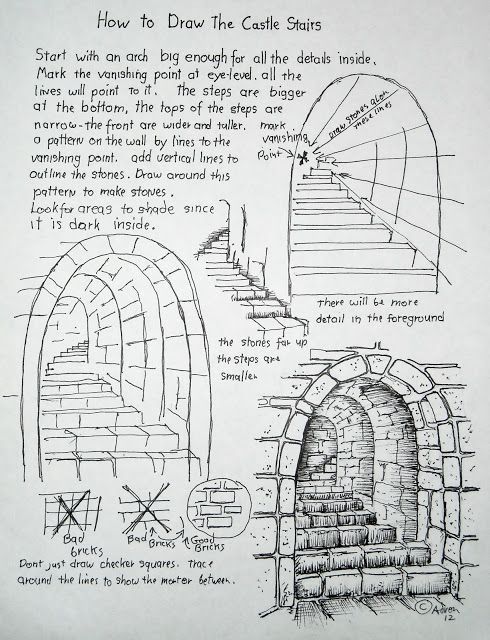 How to Draw The Castle Stairs
Start with an arch big enough for all the details inside.
Mark the vanishing point at eye-level. all the
lines will point to it. The steps are bigger
at the bottom, the tops of the steps are
narrow-the front are wider and taller.
a pattern on the wall by lines to the
vanishing point. add vertical lines to
outline the stones. Draw around this
pattern to make stones.
Look for areas to shade since
it is dark inside.
mark
vanishing
Point
Draw stones along
these lines
there will be more
detail in the foreground
the stones far up
the steps are
smaller
Bad
bricks
Bad
Bricks
Good
Bricks
Dont just draw checker squares. Trace
around the lines to show the morter between.
© Adron
12